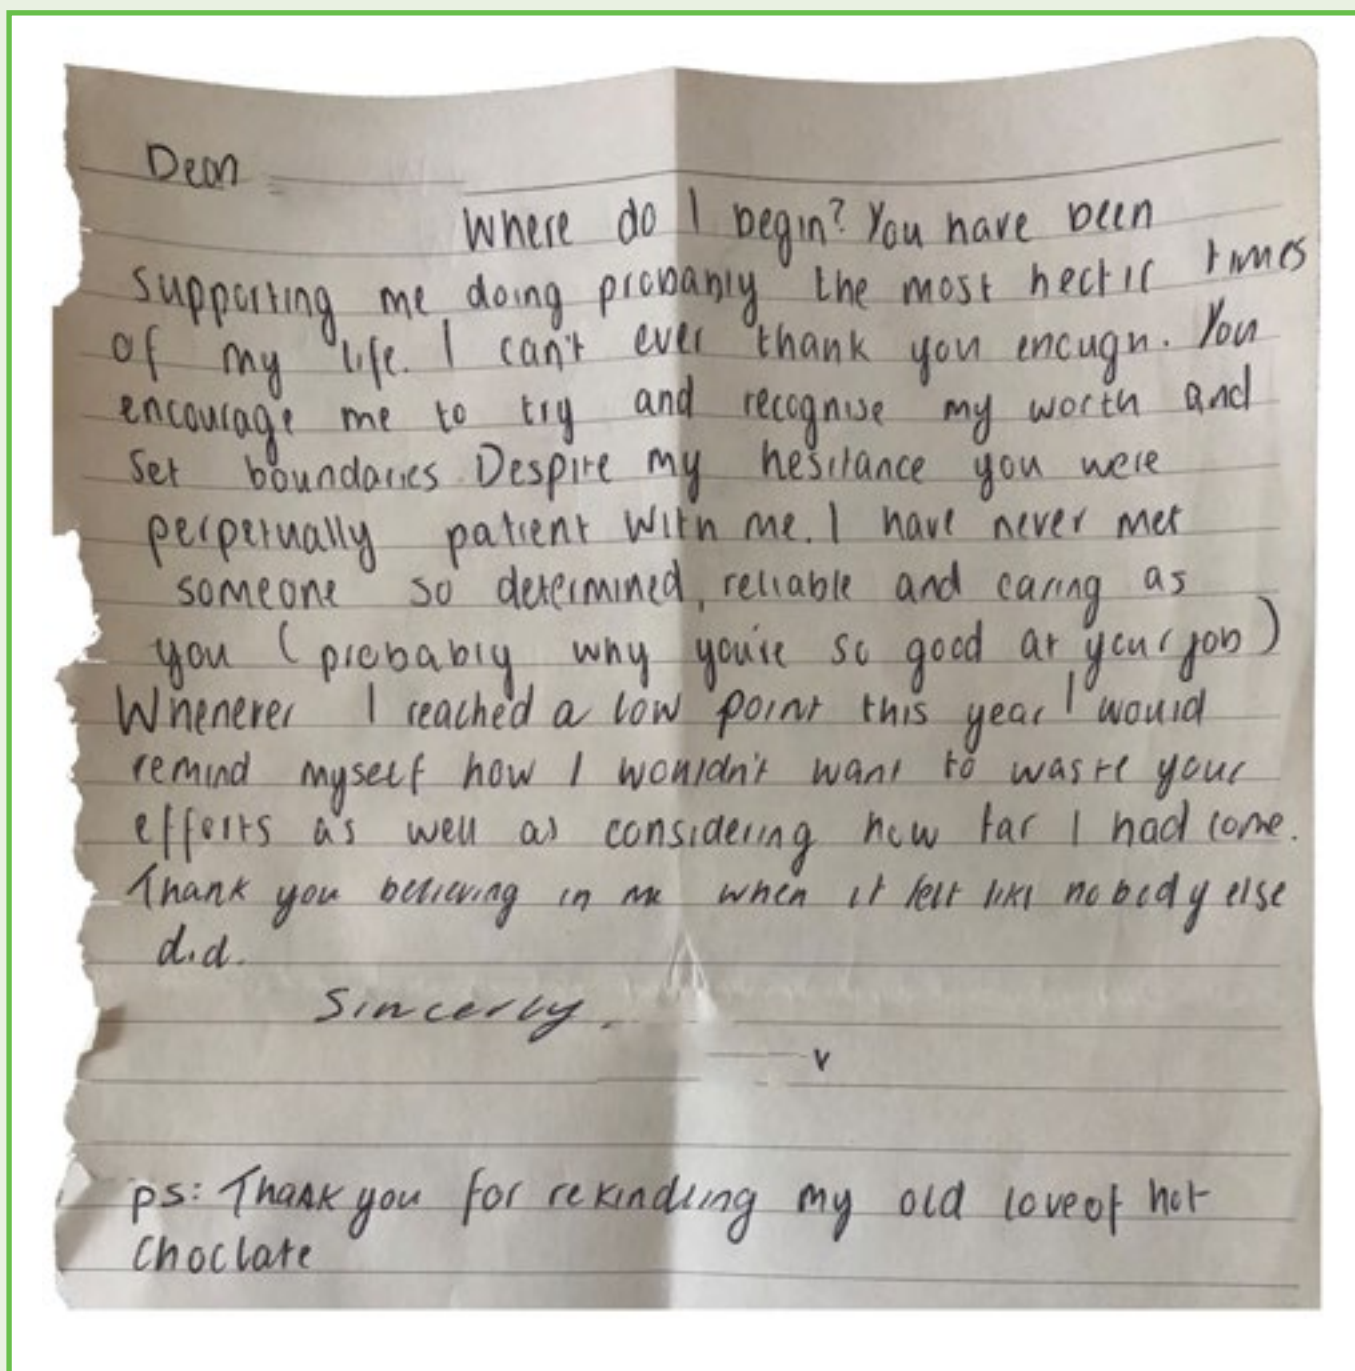 Dear
Where do I begin? You have been
supporting me doing probably the most hectic times
of my life. I can't ever thank you enough. You
encourage me to try and recognise my worth and
set boundaries. Despite my hesitance you were
perpetually patient with me. I have never met
someone so determined, reliable and caring as
you (probably why you're so good at your job)
Whenever I reached a low point this year I would
remind myself how I wouldn't want to waste your
efforts as well as considering how far I had come.
Thank you believing in me when it felt like nobody else
did.
Sincerly.
ps: Thank you for rekindling my old love of hot
Choclate